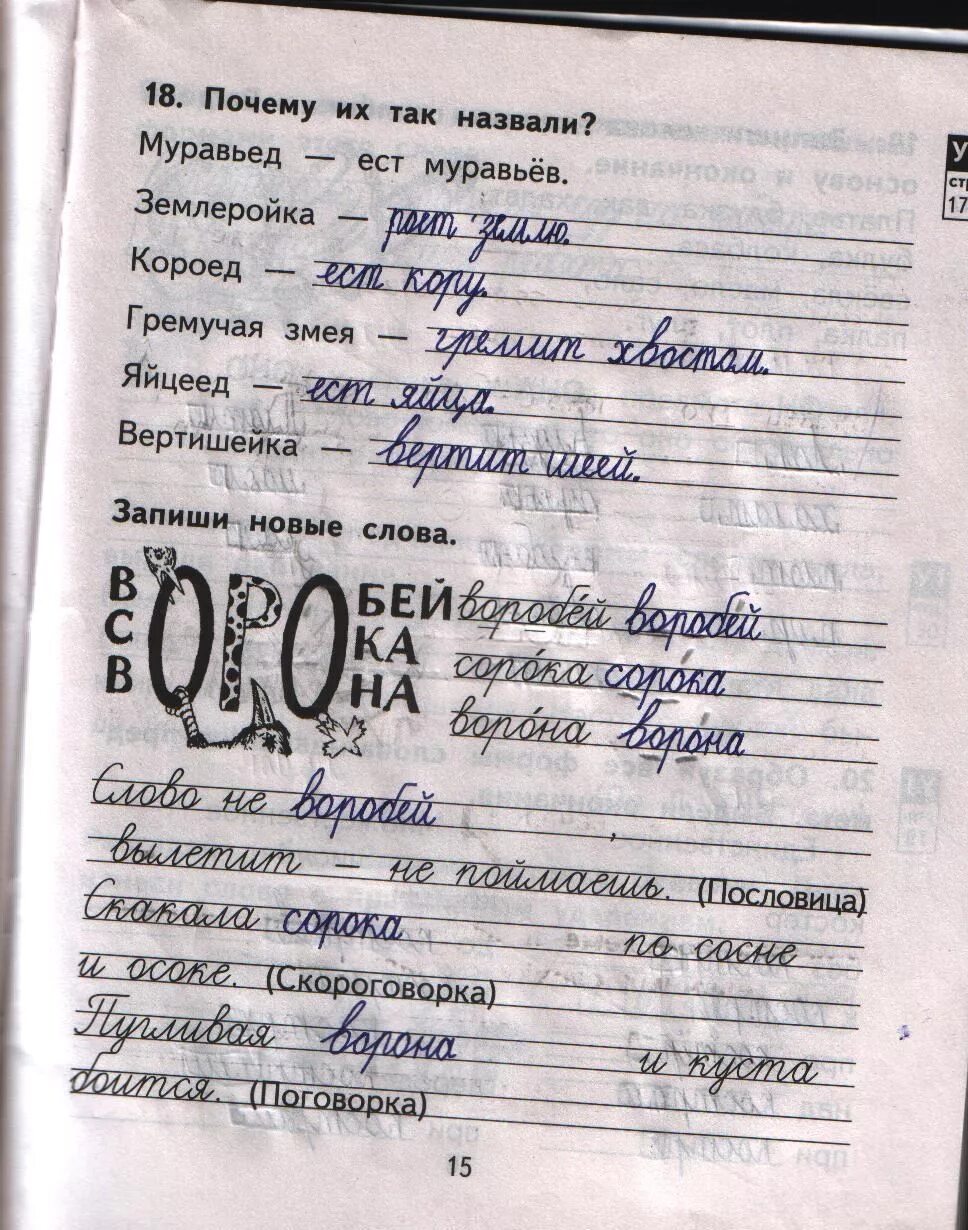 18. Почему их так назвали?
Муравьед — ест муравьёв.
Землеройка — роет землю.
Короед — ест кору.
Гремучая змея — гремит хвостом.
Яйцеед — ест яйца.
Вертишейка — вертит шеей.
Запиши новые слова.
В ОРО БЕЙ воробе́й воробе́й
С КА соро́ка соро́ка
В НА воро́на воро́на
Слово не воробей
вылетит — не поймаешь. (Пословица)
Скакала сорока по сосне
и осоке. (Скороговорка)
Пугливая ворона и куста
боится. (Поговорка)
15
У
стр
17